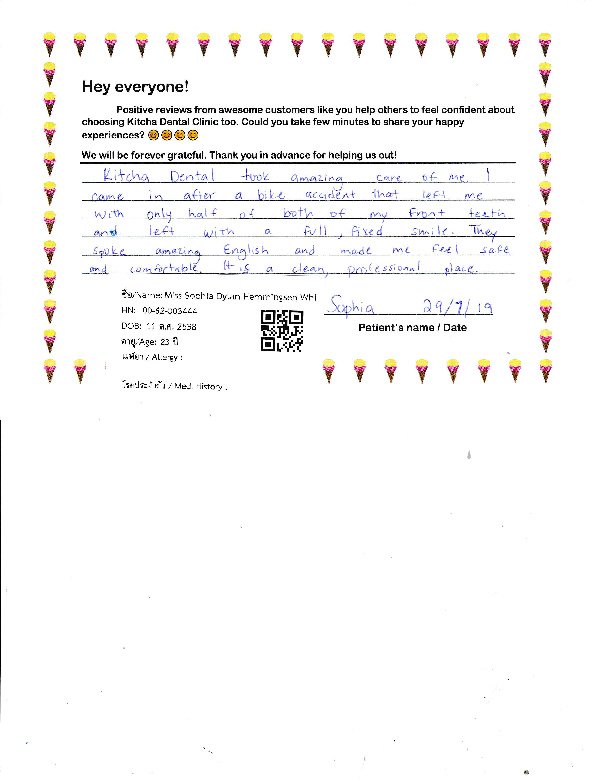 Hey everyone!
Positive reviews from awesome customers like you help others to feel confident about
choosing Kitcha Dental Clinic too. Could you take few minutes to share your happy
experiences? 😊😊😊😊
We will be forever grateful. Thank you in advance for helping us out!
Kitcha Dental took amazing care of me. I
came in after a bike accident that left me
with only half of both of my front teeth
and left with a full, fixed smile. They
spoke amazing English and made me feel safe
and comfortable. It is a clean, professional place.
ชื่อ/Name: Miss Sophia Dylan Hemmingsen
HN: 00-62-003444
DOB: 11 ต.ค. 2538
อายุ/Age: 23 ปี
แพ้ยา / Allergy :
โรคประจำตัว / Med. History :
Sophia 29/7/19
Patient's name / Date